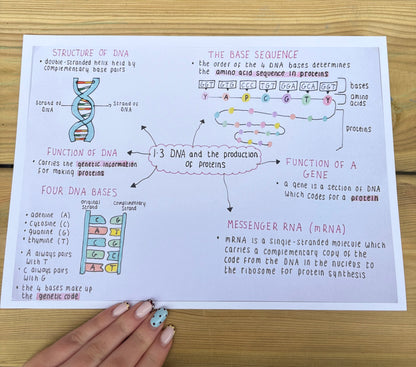 STRUCTURE OF DNA
• double-stranded helix held by
complementary base pairs
Strand of
DNA
Strand of
DNA
THE BASE SEQUENCE
• the order of the 4 DNA bases determines
the amino acid sequence in proteins
bases
Y A P C G T Y
amino
acids
proteins
1.3 DNA and the production
of proteins
FUNCTION OF DNA
• carries the genetic information
for making proteins
FUNCTION OF A
GENE
• a gene is a section of DNA
which codes for a protein
FOUR DNA BASES
• adenine (A)
• cytosine (C)
• guanine (G)
• thymine (T)
• A always pairs
with T
• C always pairs
with G
• the 4 bases make up
the genetic code
Original
Strand
Complimentary
Strand
C G
A T
T A
G C
C G
A T
MESSENGER RNA (mRNA)
• mRNA is a single-stranded molecule which
carries a complementary copy of the
code from the DNA in the nucleus to
the ribosome for protein synthesis